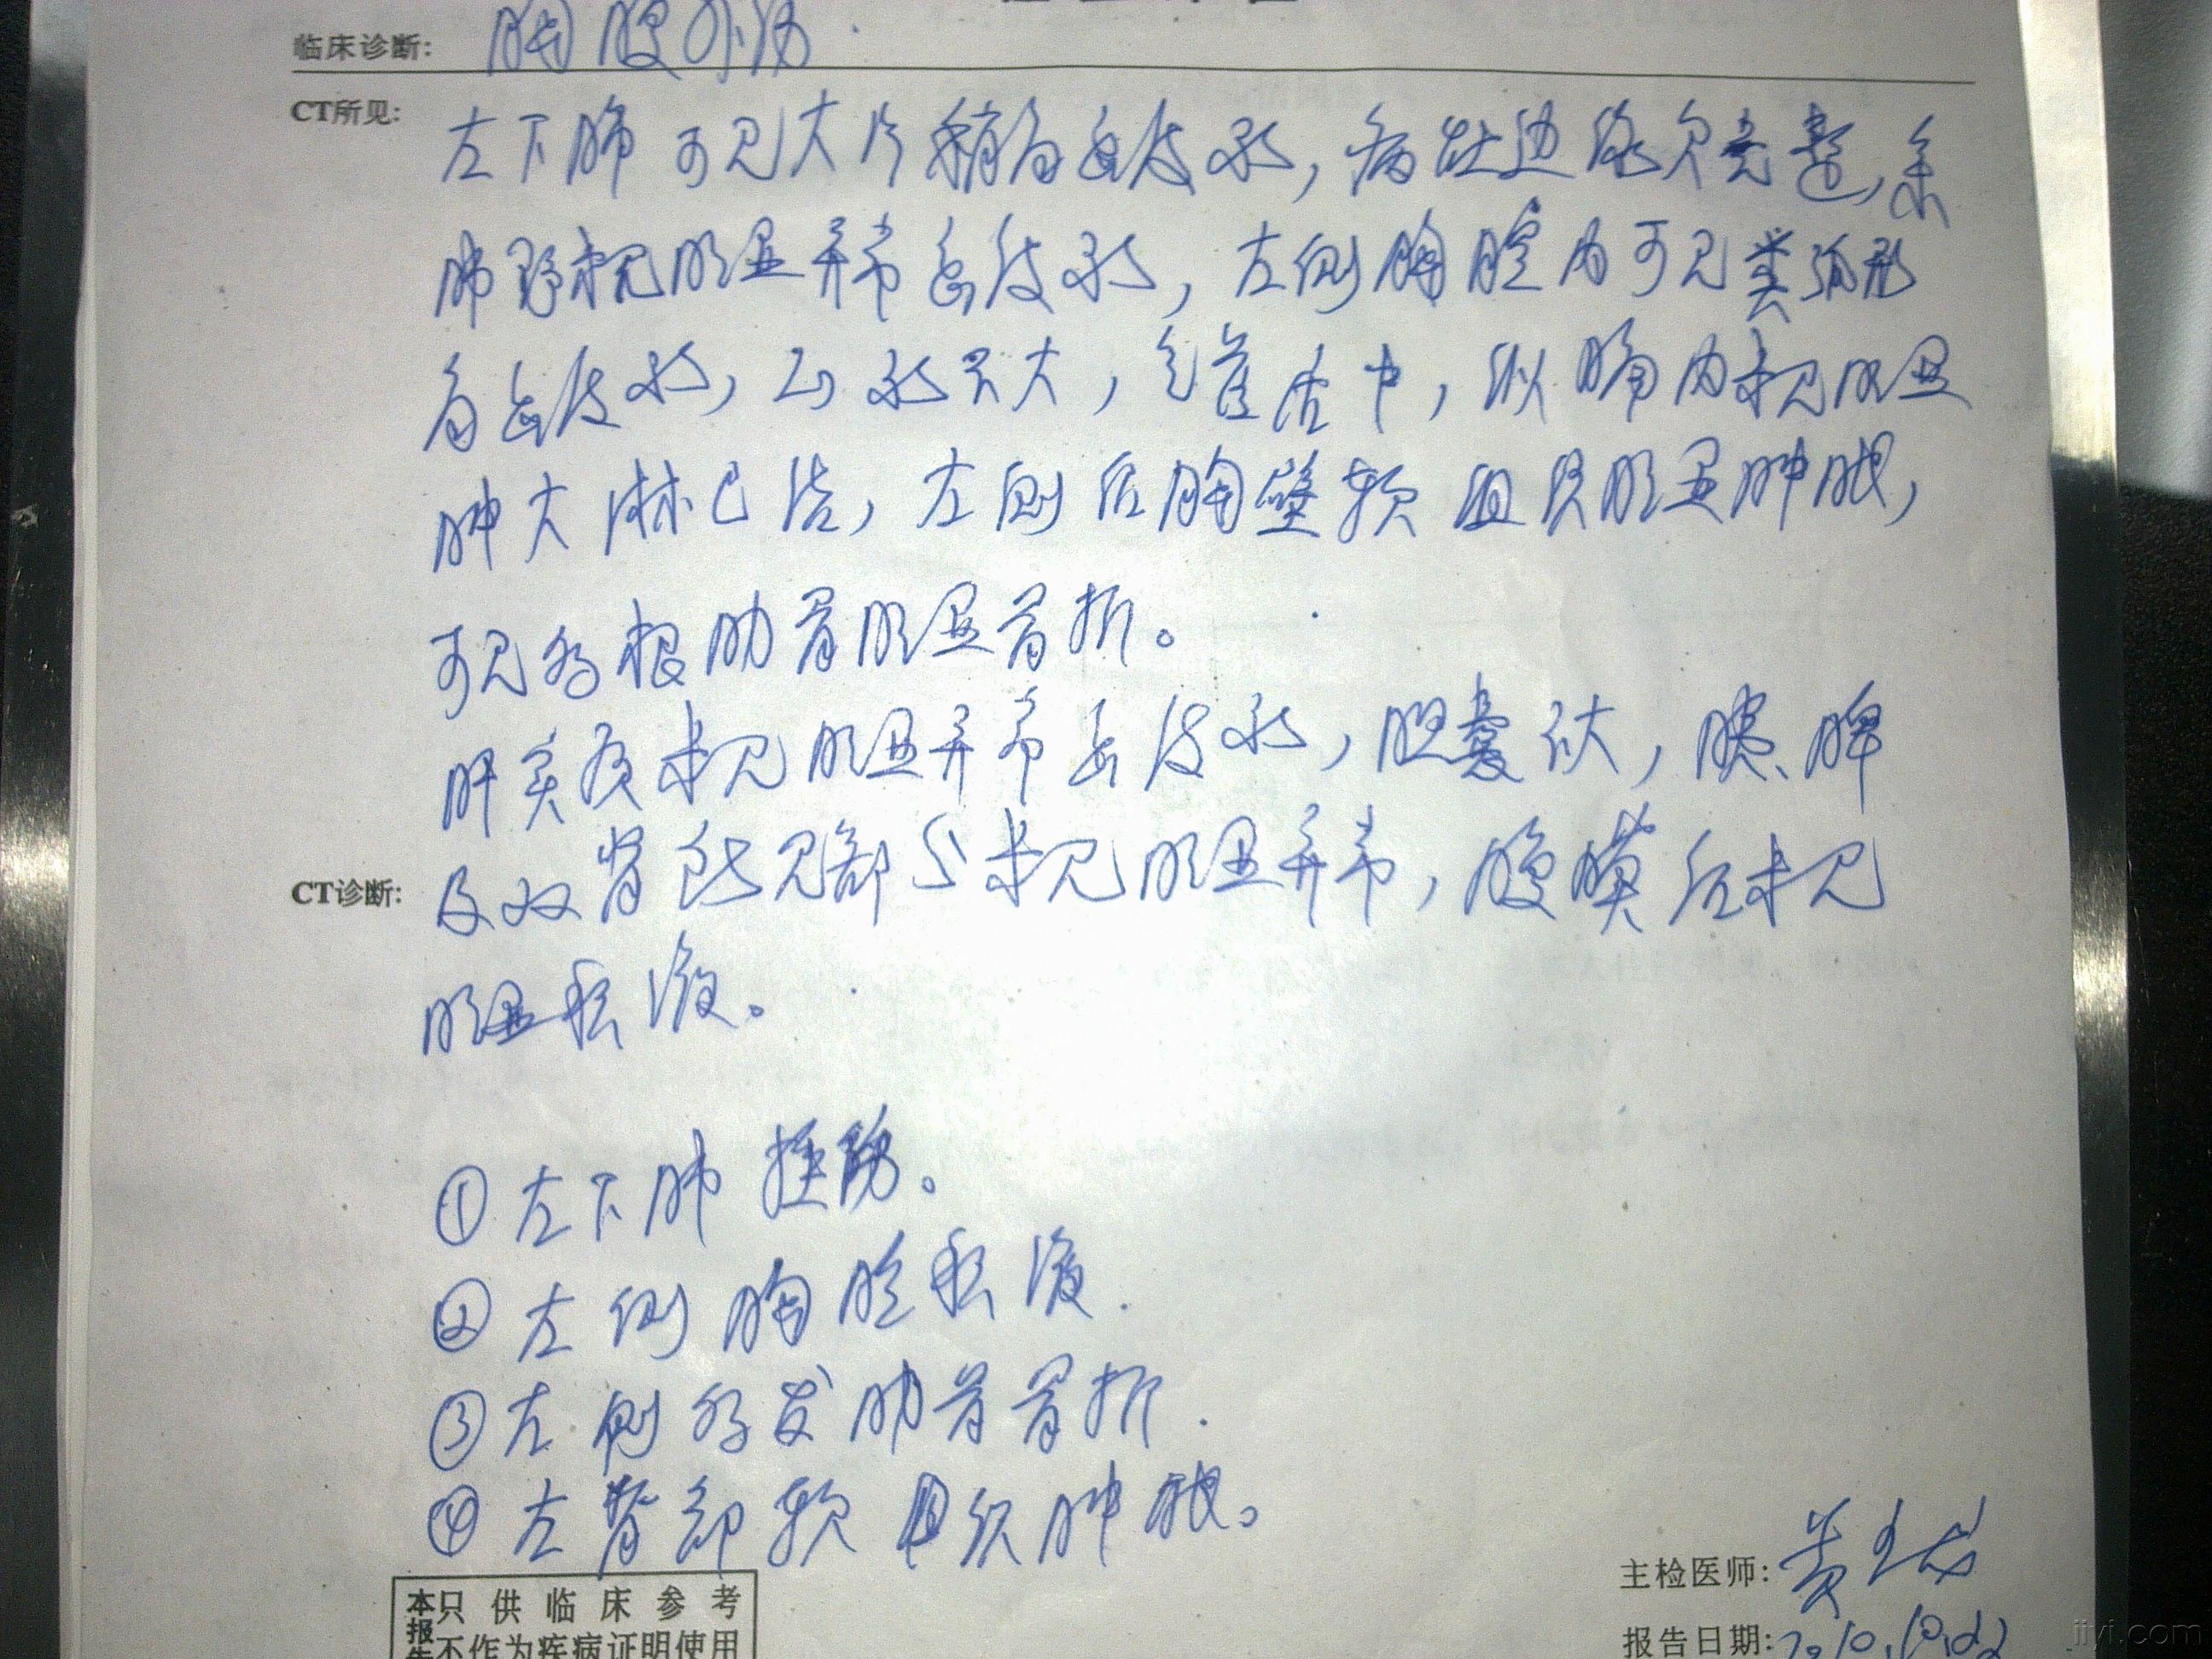 临床诊断: 胸腹外伤
CT所见: 左下肺可见大片稍高密度影,病灶边缘欠完整,余
肺野未见明显异常密度影,左侧胸腔内可见类弧形
高密度影,心影不大,气管居中,纵膈内未见明显
肿大淋巴结,左侧后胸壁软组织明显肿胀,
可见多根肋骨明显骨折。
肝实质未见明显异常密度影,胆囊不大,胰、脾
CT诊断: 及双肾所见部分未见明显异常,腹膜后未见
明显积液。
①左下肺挫伤。
②左侧胸腔积液.
③左侧多发肋骨骨折.
④左背部软组织肿胀。
主检医师: 黄
本报告只供临床参考
不作为疾病证明使用
报告日期: 2010.10.22
jiyi.com